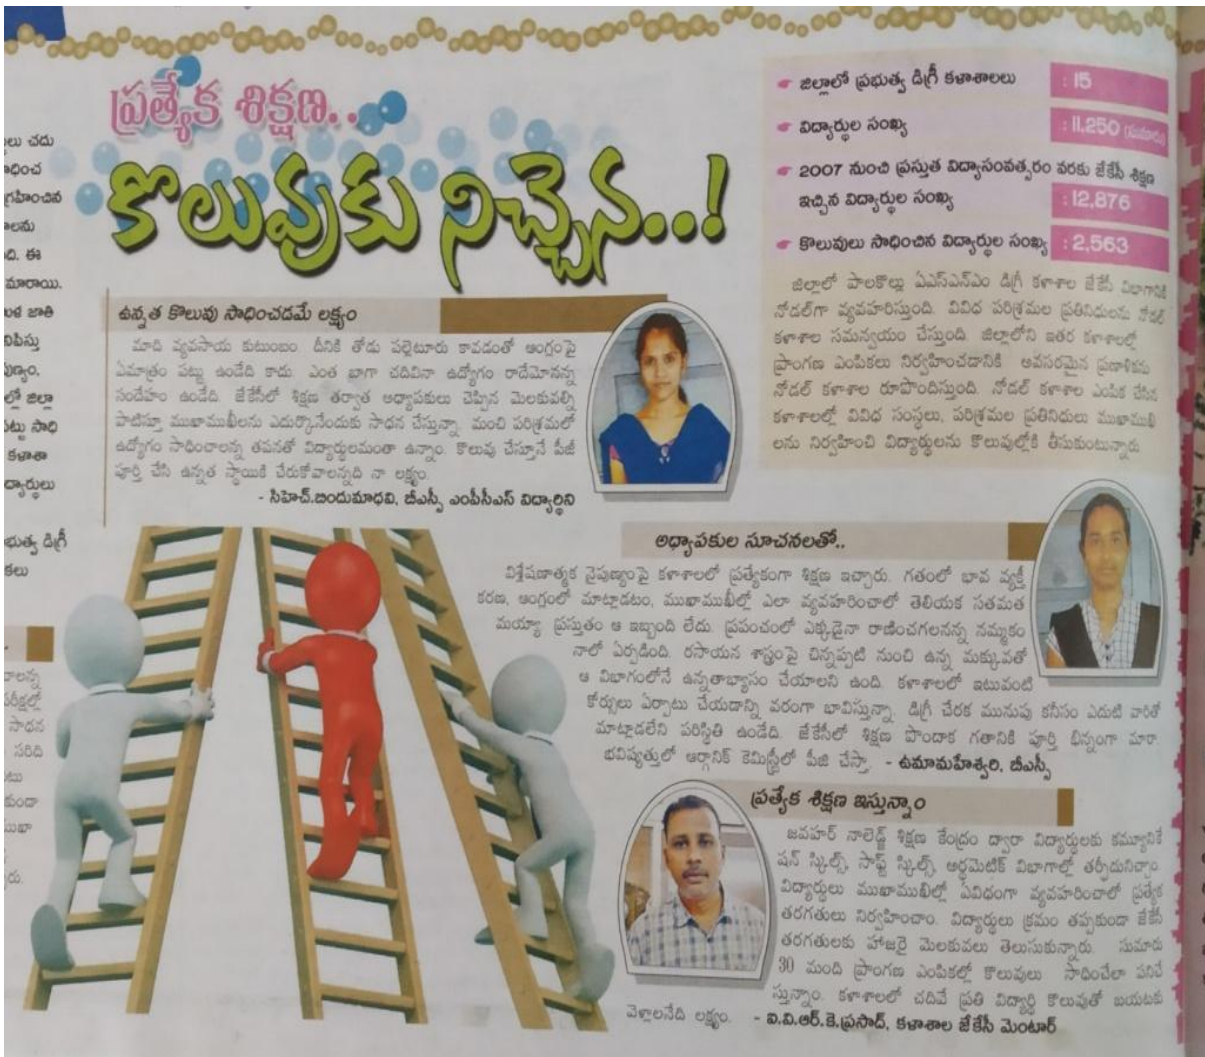 ప్రత్యేక శిక్షణ..
కొలువుకు నిచ్చెన..!
జిల్లాలో ప్రభుత్వ డిగ్రీ కళాశాలలు : 15
విద్యార్థుల సంఖ్య : 11,250 (సుమారు)
2007 నుంచి ప్రస్తుత విద్యాసంవత్సరం వరకు జేకేసీ శిక్షణ
ఇచ్చిన విద్యార్థుల సంఖ్య : 12,876
కొలువులు సాధించిన విద్యార్థుల సంఖ్య : 2,563
జిల్లాలో పాలకొల్లు ఏఎస్ఎన్ఎం డిగ్రీ కళాశాల జేకేసీ విభాగానికి
నోడల్‌గా వ్యవహరిస్తుంది. వివిధ పరిశ్రమల ప్రతినిధులను నోడల్
కళాశాల సమన్వయం చేస్తుంది. జిల్లాలోని ఇతర కళాశాలల్లో
ప్రాంగణ ఎంపికలు నిర్వహించడానికి అవసరమైన ప్రణాళికను
నోడల్ కళాశాల రూపొందిస్తుంది. నోడల్ కళాశాల ఎంపిక చేసిన
కళాశాలల్లో వివిధ సంస్థలు, పరిశ్రమల ప్రతినిధులు ముఖాముఖి
లను నిర్వహించి విద్యార్థులను కొలువుల్లోకి తీసుకుంటున్నారు.
ఉన్నత కొలువు సాధించడమే లక్ష్యం
మాది వ్యవసాయ కుటుంబం. దీనికి తోడు పల్లెటూరు కావడంతో ఆంగ్లంపై
ఏమాత్రం పట్టు ఉండేది కాదు. ఎంత బాగా చదివినా ఉద్యోగం రాదేమోనన్న
సందేహం ఉండేది. జేకేసీలో శిక్షణ తర్వాత అధ్యాపకులు చెప్పిన మెలకువల్ని
పాటిస్తూ ముఖాముఖీలను ఎదుర్కొనేందుకు సాధన చేస్తున్నా. మంచి పరిశ్రమలో
ఉద్యోగం సాధించాలన్న తపనతో విద్యార్థులమంతా ఉన్నాం. కొలువు చేస్తూనే పీజీ
పూర్తి చేసి ఉన్నత స్థాయికి చేరుకోవాలన్నది నా లక్ష్యం.
- సిహెచ్.బిందుమాధవి, బీఎస్సీ ఎంపీసీఎస్ విద్యార్థిని
అధ్యాపకుల సూచనలతో..
విశ్లేషణాత్మక నైపుణ్యంపై కళాశాలలో ప్రత్యేకంగా శిక్షణ ఇచ్చారు. గతంలో భావ వ్యక్తీ
కరణ, ఆంగ్లంలో మాట్లాడటం, ముఖాముఖీల్లో ఎలా వ్యవహరించాలో తెలియక సతమత
మయ్యా. ప్రస్తుతం ఆ ఇబ్బంది లేదు. ప్రపంచంలో ఎక్కడైనా రాణించగలనన్న నమ్మకం
నాలో ఏర్పడింది. రసాయన శాస్త్రంపై చిన్నప్పటి నుంచి ఉన్న మక్కువతో
ఆ విభాగంలోనే ఉన్నతాభ్యాసం చేయాలని ఉంది. కళాశాలలో ఇటువంటి
కోర్సులు ఏర్పాటు చేయడాన్ని వరంగా భావిస్తున్నా. డిగ్రీ చేరక మునుపు కనీసం ఎదుటి వారితో
మాట్లాడలేని పరిస్థితి ఉండేది. జేకేసీలో శిక్షణ పొందాక గతానికి పూర్తి భిన్నంగా మారా.
భవిష్యత్తులో ఆర్గానిక్ కెమిస్ట్రీలో పీజీ చేస్తా. - ఉమామహేశ్వరి, బీఎస్సీ
ప్రత్యేక శిక్షణ ఇస్తున్నాం
జవహర్ నాలెడ్జ్ శిక్షణ కేంద్రం ద్వారా విద్యార్థులకు కమ్యూనికే
షన్ స్కిల్స్, సాఫ్ట్ స్కిల్స్, అర్థమెటిక్ విభాగాల్లో తర్ఫీదునిచ్చాం.
విద్యార్థులు ముఖాముఖీల్లో ఏవిధంగా వ్యవహరించాలో ప్రత్యేక
తరగతులు నిర్వహించాం. విద్యార్థులు క్రమం తప్పకుండా జేకేసీ
తరగతులకు హాజరై మెలకువలు తెలుసుకున్నారు. సుమారు
30 మంది ప్రాంగణ ఎంపికల్లో కొలువులు సాధించేలా పనిచే
స్తున్నాం. కళాశాలలో చదివే ప్రతి విద్యార్థి కొలువుతో బయటకు
వెళ్లాలనేది లక్ష్యం. - ఐ.వి.ఆర్.కె.ప్రసాద్, కళాశాల జేకేసీ మెంటార్